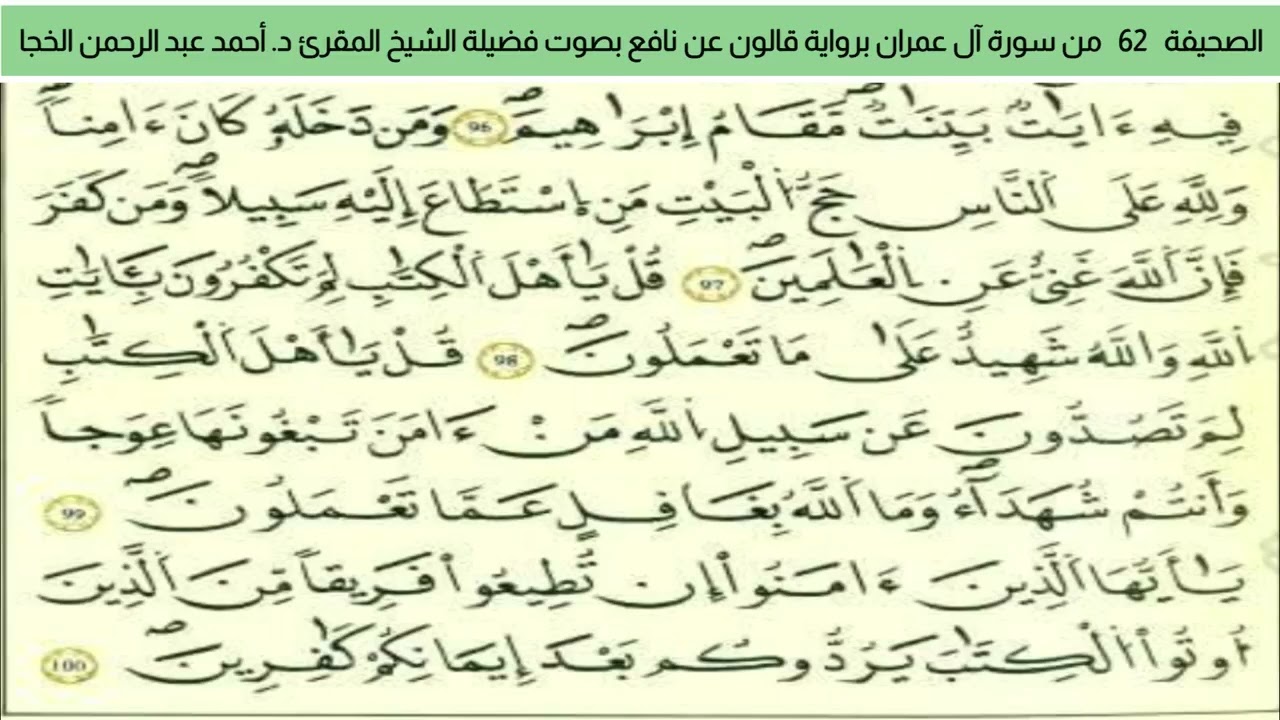 الصحيفة 62 من سورة آل عمران برواية قالون عن نافع بصوت فضيلة الشيخ المقرئ د. أحمد عبد الرحمن الخجا
فِيهِ ءَايَٰتُۢ بَيِّنَٰتٞ مَّقَامُ إِبْرَٰهِيمَۖ 96 وَمَن دَخَلَهُۥ كَانَ ءَامِناٗۖ
وَلِلهِ عَلَى اَ۬لنَّاسِ حَجُّ اُ۬لْبَيْتِ مَنِ اِ۪سْتَطَاعَ إِلَيْهِ سَبِيلاٗۖ وَمَن كَفَرَ
فَإِنَّ اَ۬للَّهَ غَنِيٌّ عَنِ اِ۬لْعَٰلَمِينَۖ 97 قُلْ يَٰأَهْلَ اَ۬لْكِتَٰبِ لِمَ تَكْفُرُونَ بِـَٔايَٰتِ
اِ۬للَّهِ وَاللَّهُ شَهِيدٌ عَلَىٰ مَا تَعْمَلُونَۖ 98 قُلْ يَٰأَهْلَ اَ۬لْكِتَٰبِ
لِمَ تَصُدُّونَ عَن سَبِيلِ اِ۬للَّهِ مَنْ ءَامَنَ تَبْغُونَهَا عِوَجاٗ
وَأَنتُمْ شُهَدَآءُۖ وَمَا اَ۬للَّهُ بِغَٰفِلٍ عَمَّا تَعْمَلُونَۖ 99
يَٰأَيُّهَا اَ۬لَّذِينَ ءَامَنُوٓاْ إِن تُطِيعُواْ فَرِيقاٗ مِّنَ اَ۬لَّذِينَ
أُوتُواْ اُ۬لْكِتَٰبَ يَرُدُّوكُم بَعْدَ إِيمَٰنِكُمْ كَٰفِرِينَۖ 100